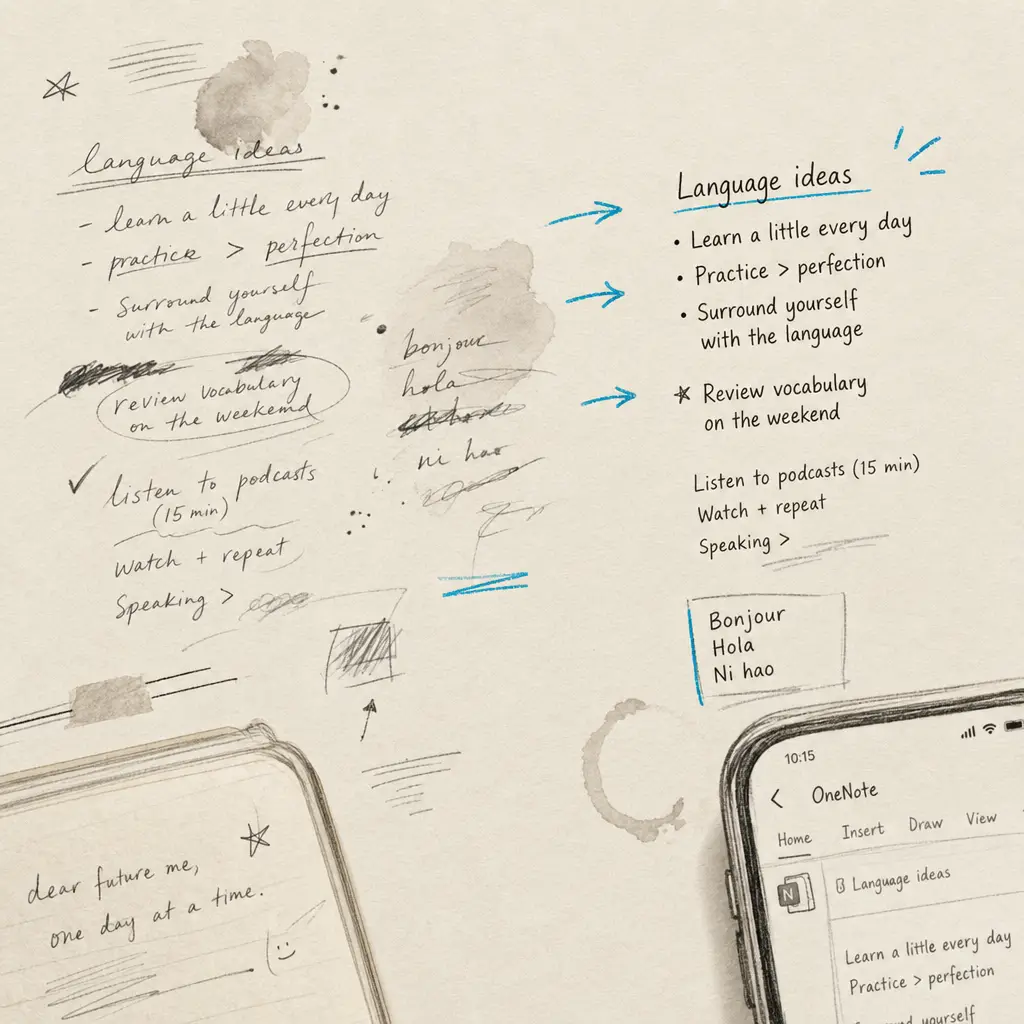 language ideas
- learn a little every day
- practice > perfection
- Surround yourself
with the language
review vocabulary
on the weekend
✓ listen to podcasts
(15 min)
watch + repeat
Speaking >
bonjour
hola
ni hao
Language ideas
• Learn a little every day
• Practice > perfection
• Surround yourself
with the language
★ Review vocabulary
on the weekend
Listen to podcasts (15 min)
Watch + repeat
Speaking >
Bonjour
Hola
Ni hao
dear future me,
one day at a time.
10:15
< OneNote
Home Insert Draw View
N
Language ideas
Learn a little every day
Practice > perfection
yourself